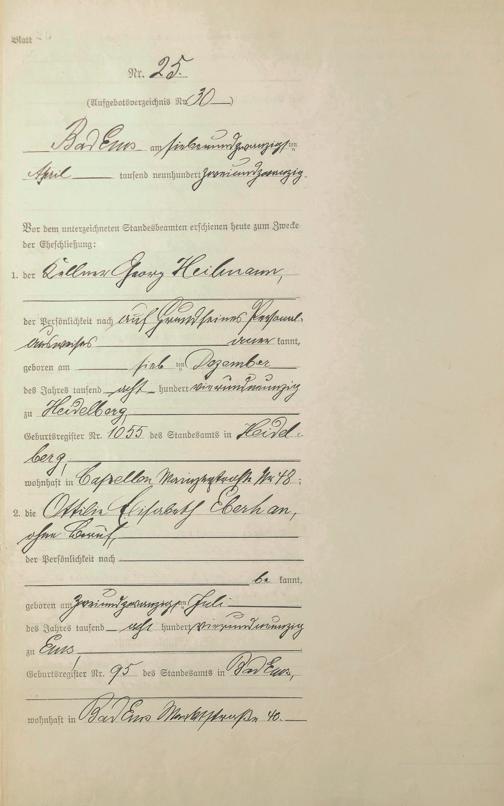 Blatt
Nr. 25.
(Aufgebotsverzeichnis Nr. 30)
Bad Ems am siebenundzwanzigsten
April tausend neunhundert zweiundzwanzig.
Vor dem unterzeichneten Standesbeamten erschienen heute zum Zwecke
der Eheschließung:
1. der Kellner Georg Heilmann,
der Persönlichkeit nach auf Grund seines Personal-
ausweises aner kannt,
geboren am siebten Dezember
des Jahres tausend acht hundert vierundneunzig
zu Heidelberg,
Geburtsregister Nr. 1055 des Standesamts in Heidel-
berg,
wohnhaft in Capellen Nr 48;
2. die Ottilie Elisabeth Eberhan,
ohne Beruf,
der Persönlichkeit nach
be kannt,
geboren am zweiundzwanzigten Juli
des Jahres tausend acht hundert vierundneunzig
zu Ems,
Geburtsregister Nr. 95 des Standesamts in Bad Ems,
wohnhaft in Bad Ems Marktstraße 40.